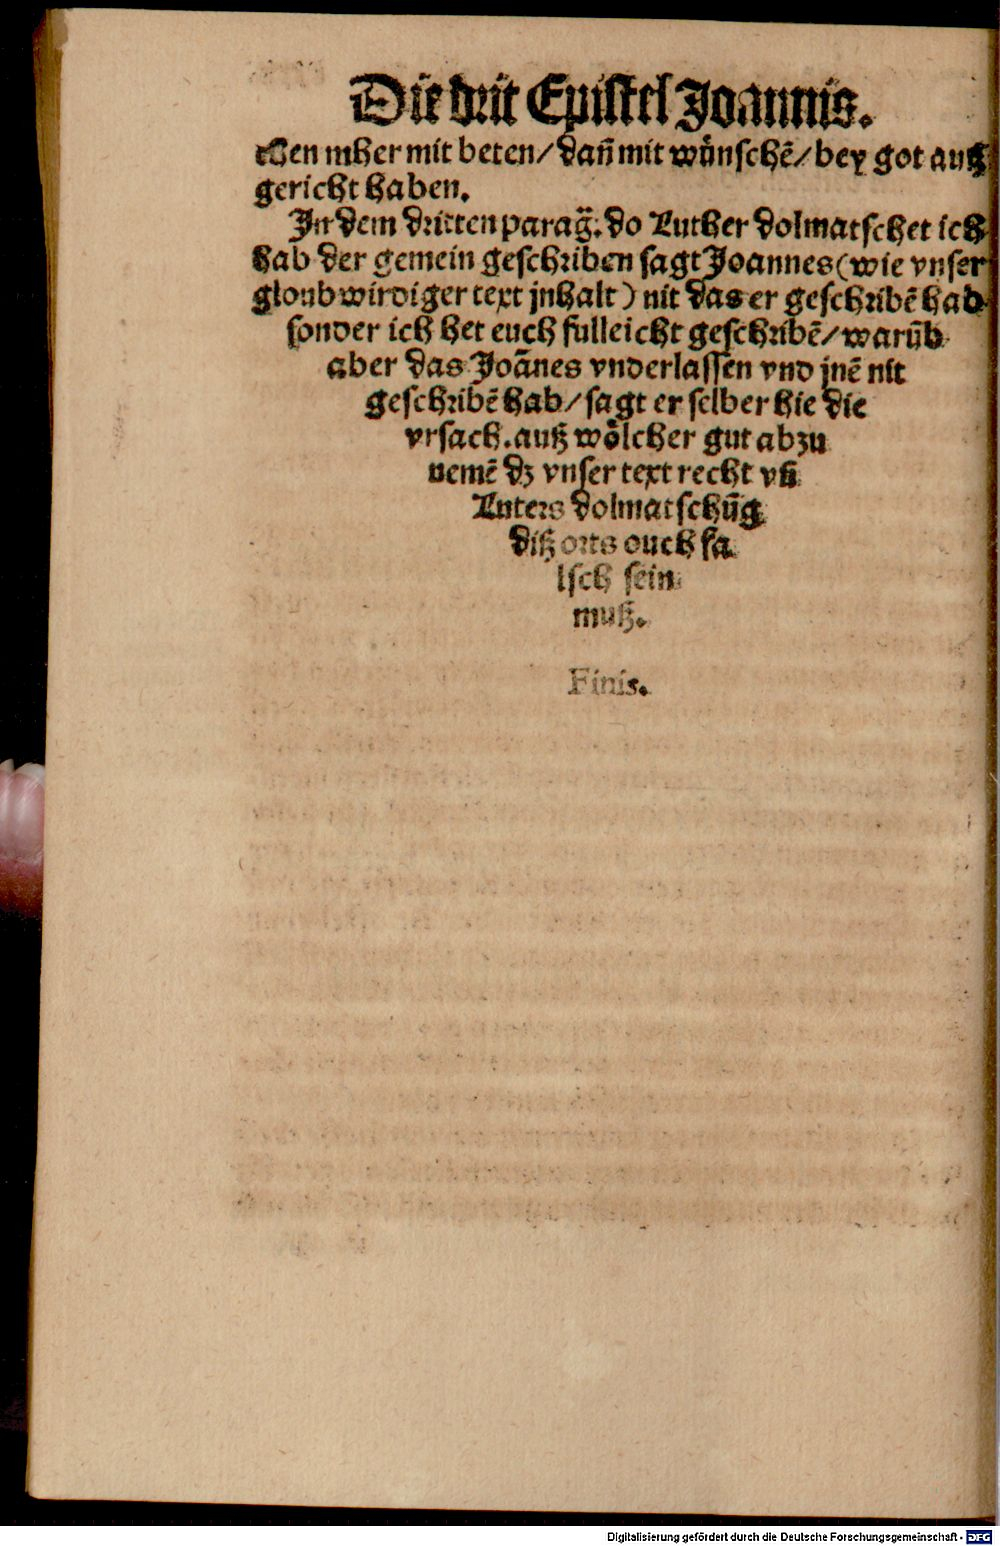 Die drit Epistel Joannis.
wen mher mit beten/ dañ mit wünschē/ bey got auß
gericht haben.
In dem dritten parag̃. do Luther dolmatschet ich
hab der gemein geschriben sagt Joannes (wie vnser
gloubwirdiger text jnhalt) nit das er geschribē hab
sonder ich het euch fulleicht geschribē/ warūb
aber das Joānes vnderlassen vnd jnē nit
geschribē hab/ sagt er selber hie die
vrsach. auß wölcher gut abzu
nemē dz vnser text recht vñ
Luters dolmatschūg
diß orts ouch fa
lsch sein
muß.
Finis.
Digitalisierung gefördert durch die Deutsche Forschungsgemeinschaft - DFG